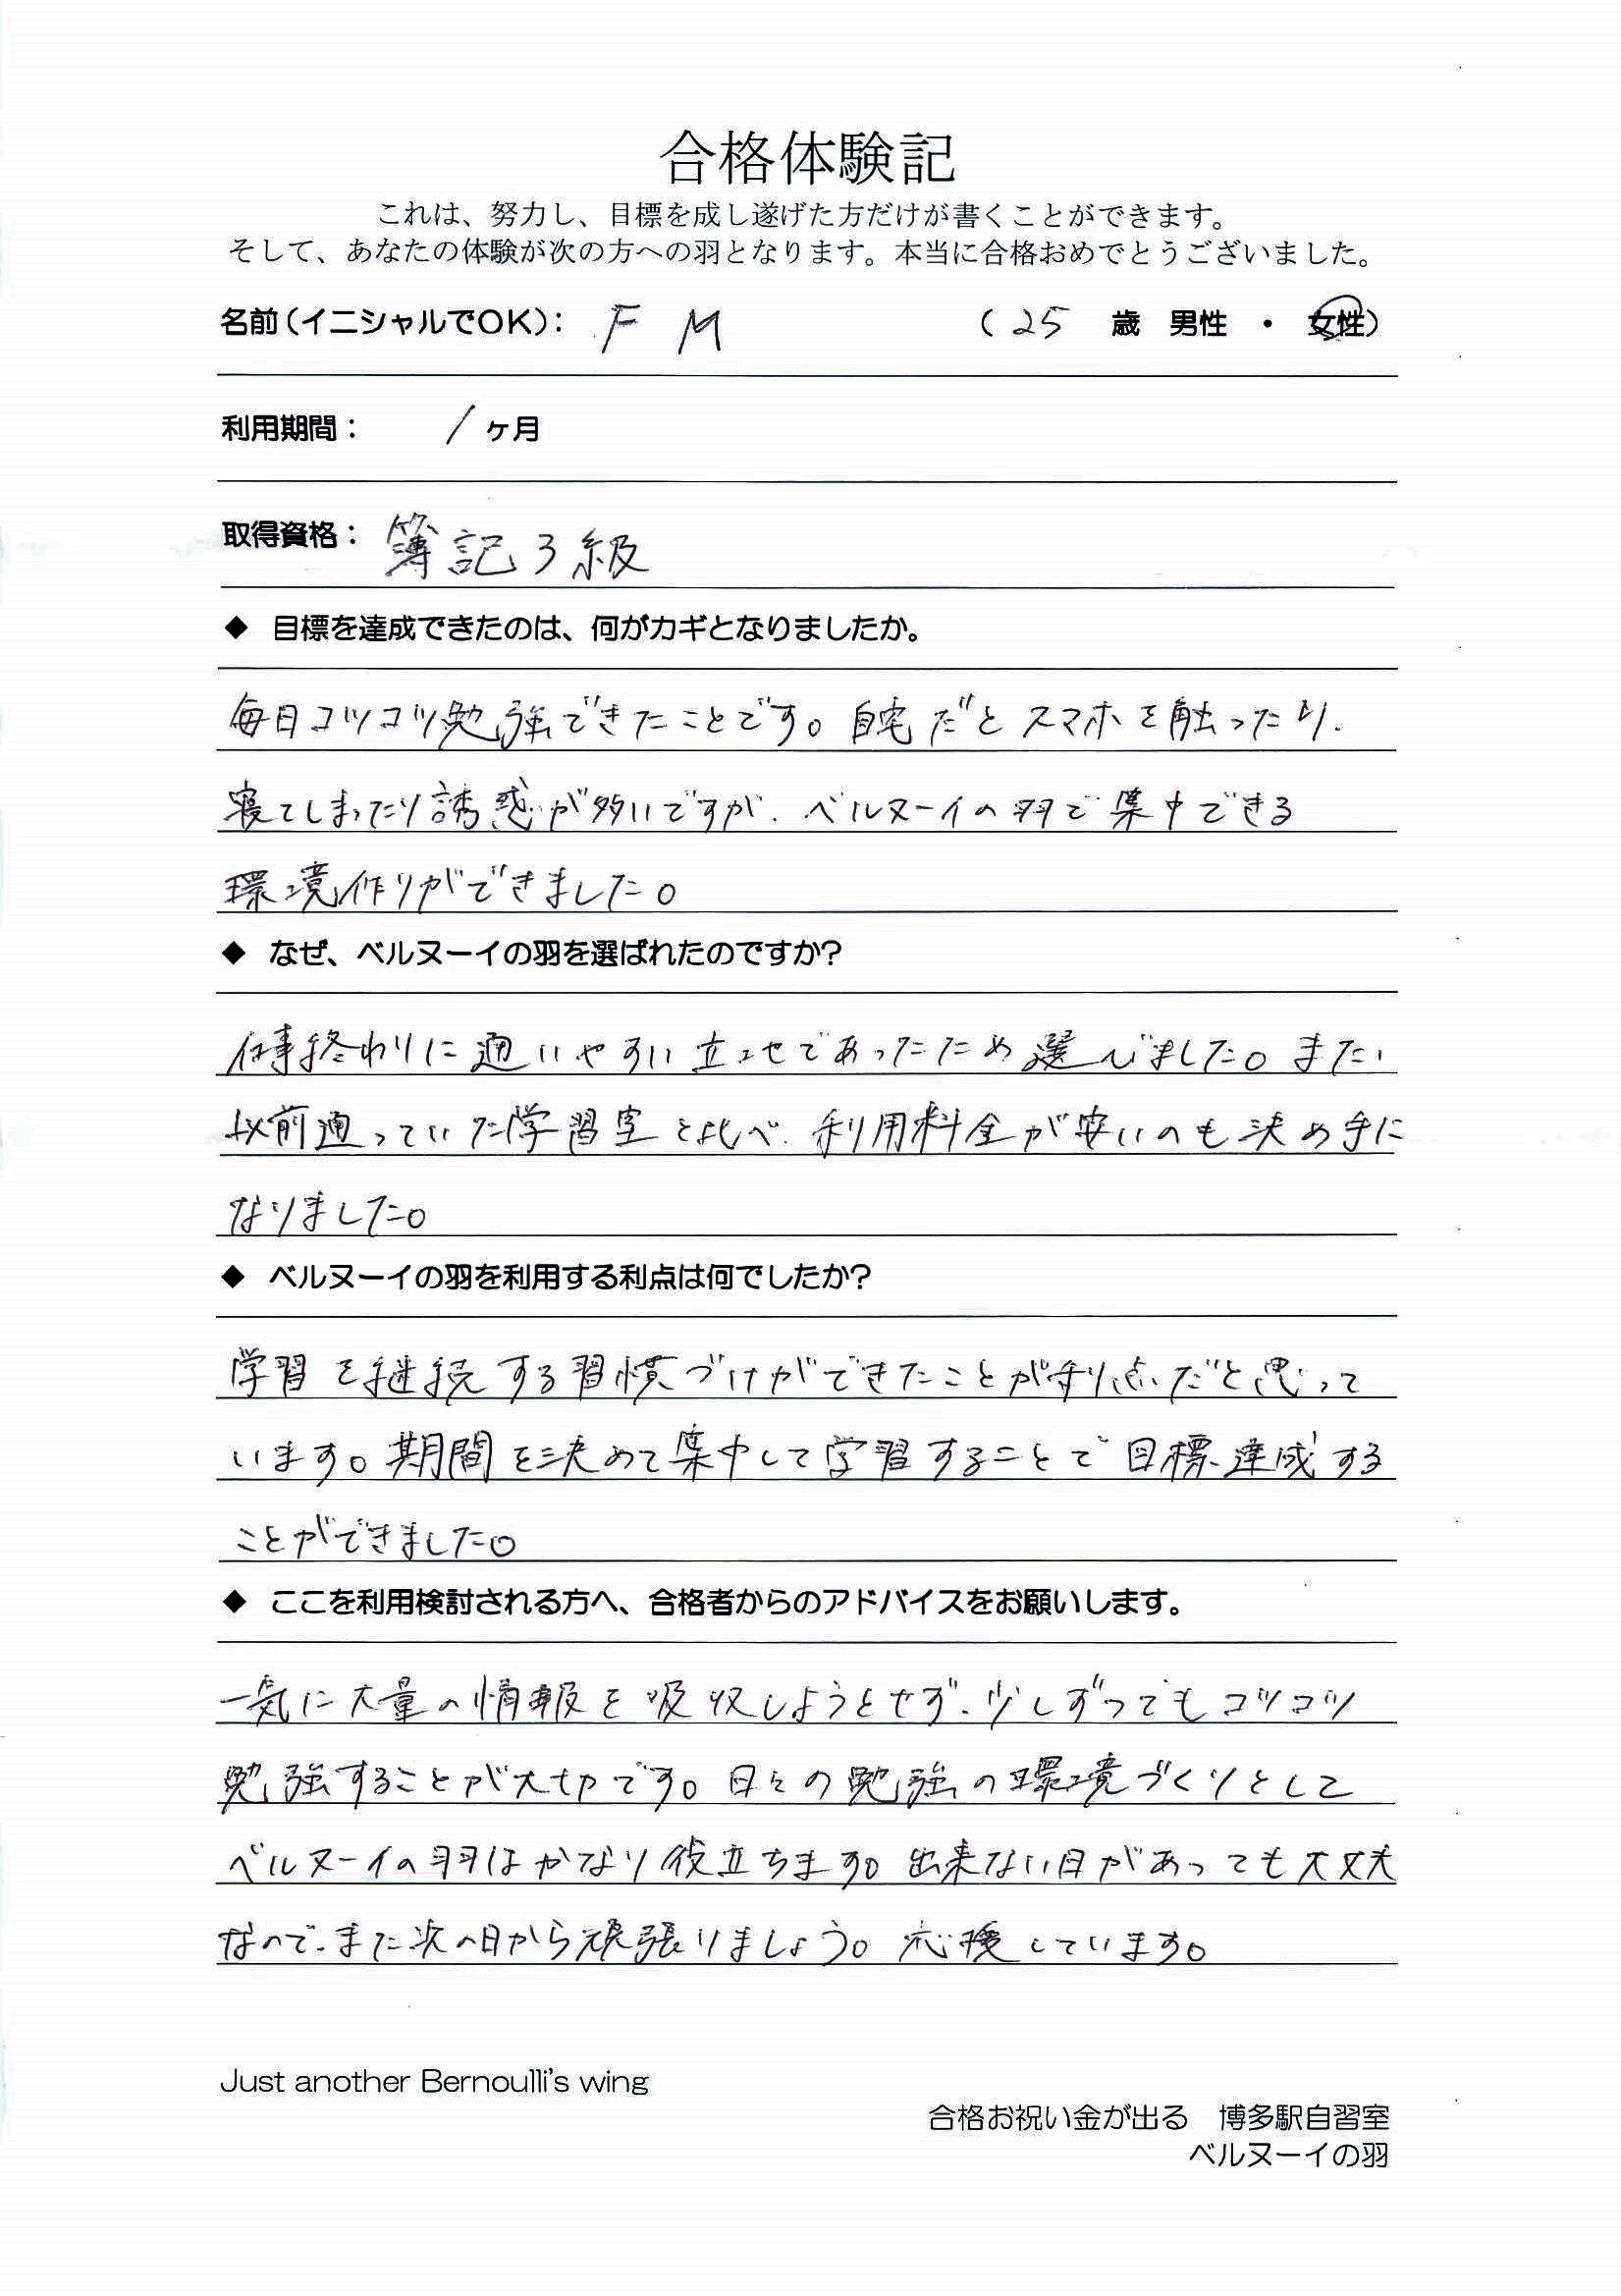 合格体験記
これは、努力し、目標を成し遂げた方だけが書くことができます。
そして、あなたの体験が次の方への羽となります。本当に合格おめでとうございました。
名前(イニシャルでOK): F M (25 歳 男性 ・ 女性)
利用期間: 1ヶ月
取得資格: 簿記3級
◆ 目標を達成できたのは、何がカギとなりましたか。
毎日コツコツ勉強できたことです。自宅だとスマホを触ったり、
寝てしまったり誘惑が多いですが、ベルヌーイの羽で集中できる
環境作りができました。
◆ なぜ、ベルヌーイの羽を選ばれたのですか?
仕事終わりに通いやすい立地であったため選びました。また、
以前通っていた学習室と比べ、利用料金が安いのも決め手に
なりました。
◆ ベルヌーイの羽を利用する利点は何でしたか?
学習を継続する習慣づけができたことが利点だと思って
います。期間を決めて集中して学習することで目標達成する
ことができました。
◆ ここを利用検討される方へ、合格者からのアドバイスをお願いします。
一気に大量の情報を吸収しようとせず、少しずつでもコツコツ
勉強することが大切です。日々の勉強の環境づくりとして
ベルヌーイの羽はかなり役立ちます。出来ない日があっても大丈夫
なので、また次の日から頑張りましょう。応援しています。
Just another Bernoulli's wing
合格お祝い金が出る 博多駅自習室
ベルヌーイの羽